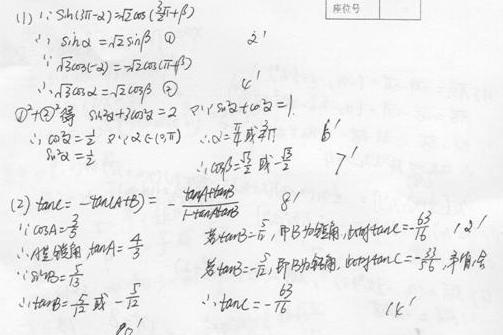 座位号
(1) ∵ sin(3π-α)=√2cos(3/2π+β)
∴ sinα=√2sinβ ① 2'
∵ √3cos(-α)=-√2cos(π+β)
∴ √3cosα=√2cosβ ② 4'
①²+②²得 sin²α+3cos²α=2 又∵sin²α+cos²α=1
∴ cos²α=1/2 又∵α∈(0,π) ∴α=π/4或3/4π 6'
sin²α=1/2
∴cosβ=√3/2或-√3/2 7'
(2) tanC=-tan(A+B)=-(tanA+tanB)/(1-tanAtanB) 8'
∵cosA=3/5
∴A是锐角,tanA=4/3
若tanB=5/12,即B为锐角,此时tanC=-63/16 12'
∵sinB=5/13
若tanB=-5/12,即B为钝角,此时tanC=-33/56,矛盾,舍
∴tanB=5/12或-5/12
∴tanC=-63/16 14'